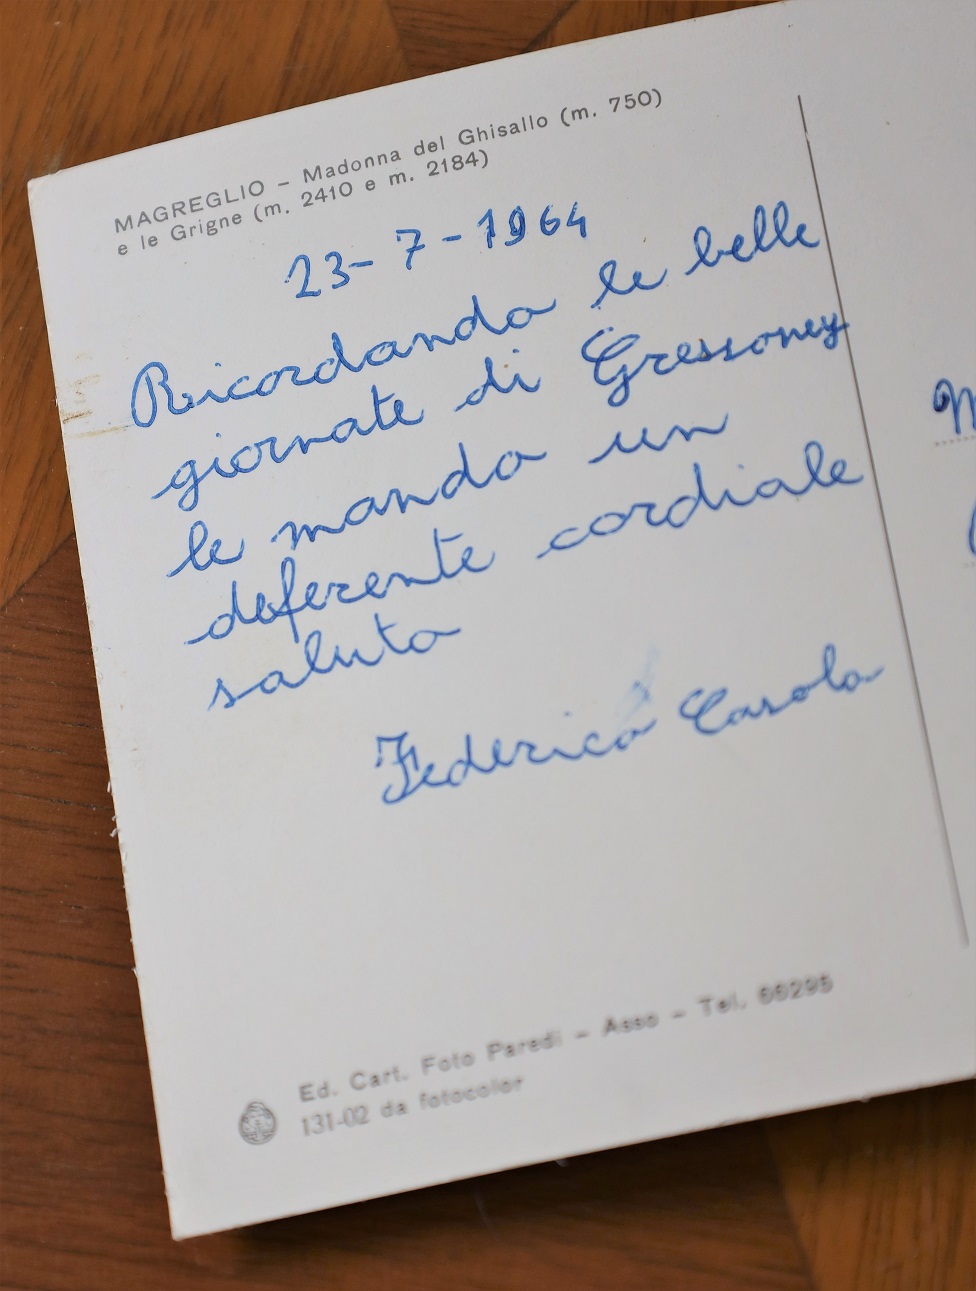 MAGREGLIO – Madonna del Ghisallo (m. 750)
e le Grigne (m. 2410 e m. 2184)
23- 7 - 1964
Ricordando le belle
giornate di Gressoney
le mando un
deferente cordiale
saluto
Federico Casola
Ed. Cart. Foto Paredi – Asso – Tel. 66295
131-02 da fotocolor